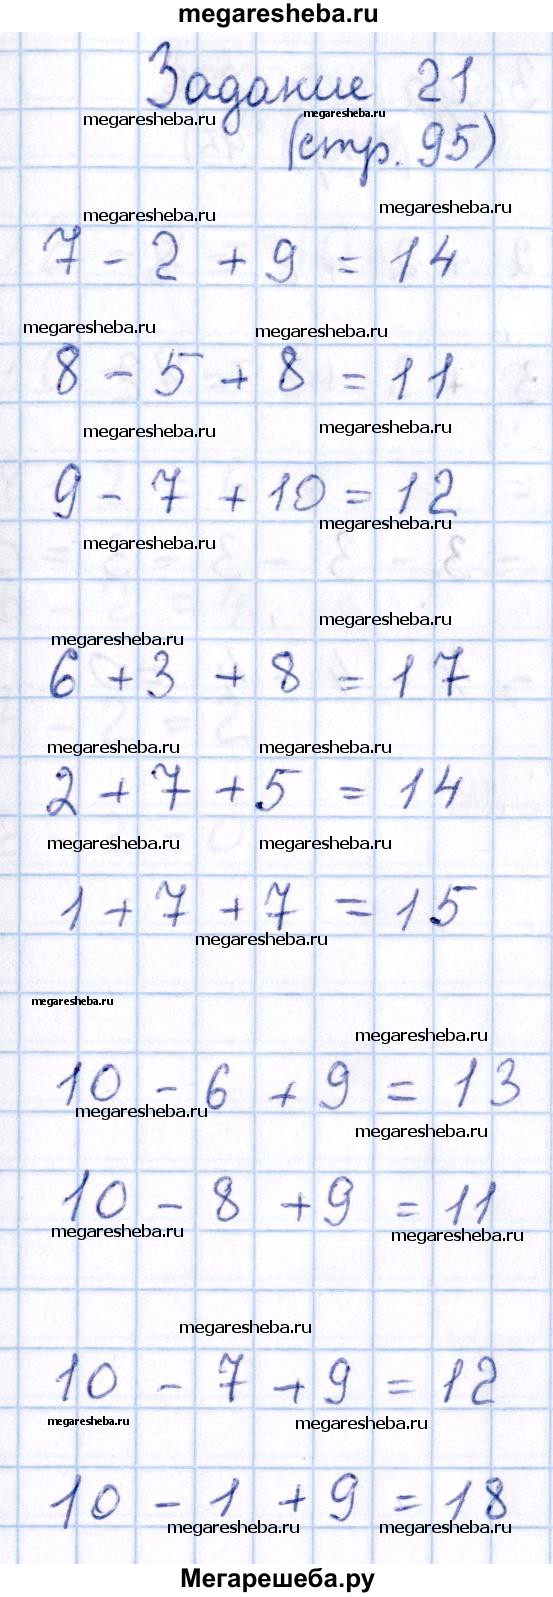 megaresheba.ru
Задание 21
megaresheba.ru megaresheba.ru
(стр. 95)
megaresheba.ru megaresheba.ru
7 - 2 + 9 = 14
megaresheba.ru megaresheba.ru
8 - 5 + 8 = 11
megaresheba.ru megaresheba.ru
9 - 7 + 10 = 12
megaresheba.ru
megaresheba.ru
megaresheba.ru
megaresheba.ru
6 + 3 + 8 = 17
megaresheba.ru megaresheba.ru
2 + 7 + 5 = 14
megaresheba.ru megaresheba.ru
1 + 7 + 7 = 15
megaresheba.ru
megaresheba.ru
megaresheba.ru
10 - 6 + 9 = 13
megaresheba.ru
megaresheba.ru
10 - 8 + 9 = 11
megaresheba.ru megaresheba.ru
megaresheba.ru
10 - 7 + 9 = 12
megaresheba.ru megaresheba.ru
10 - 1 + 9 = 18
megaresheba.ru megaresheba.ru
Мегарешеба.ру